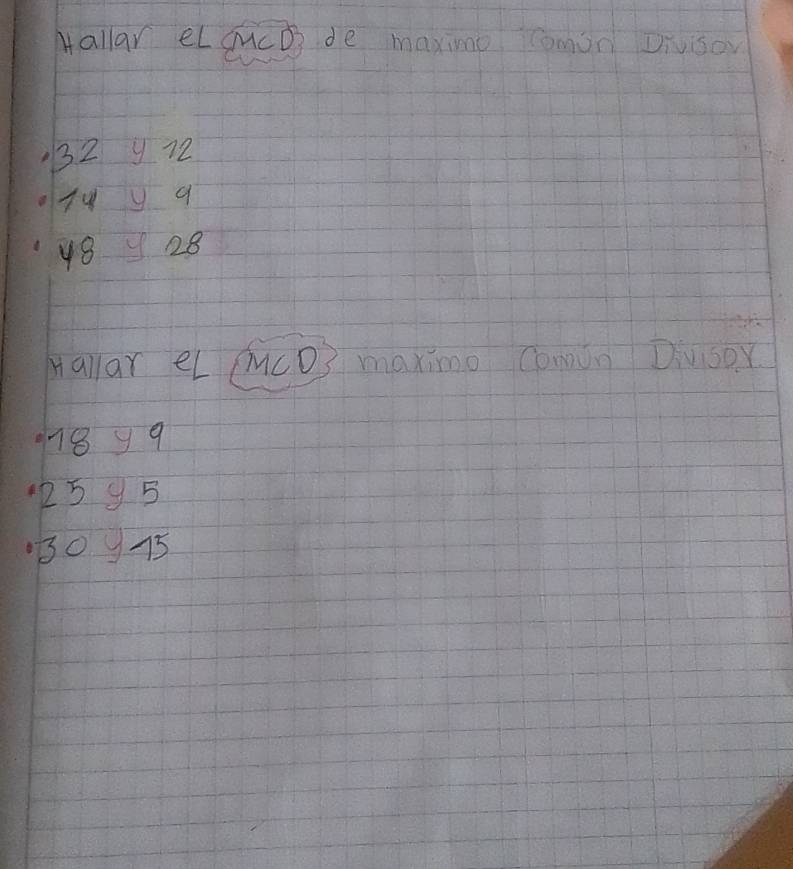 Hallar el MCD de maximo Común Divisor
• 32 y 12
• 14 y 9
• 48 y 28
Hallar el MCD maximo Común Divisor
• 18 y 9
• 25 y 5
• 30 y 15